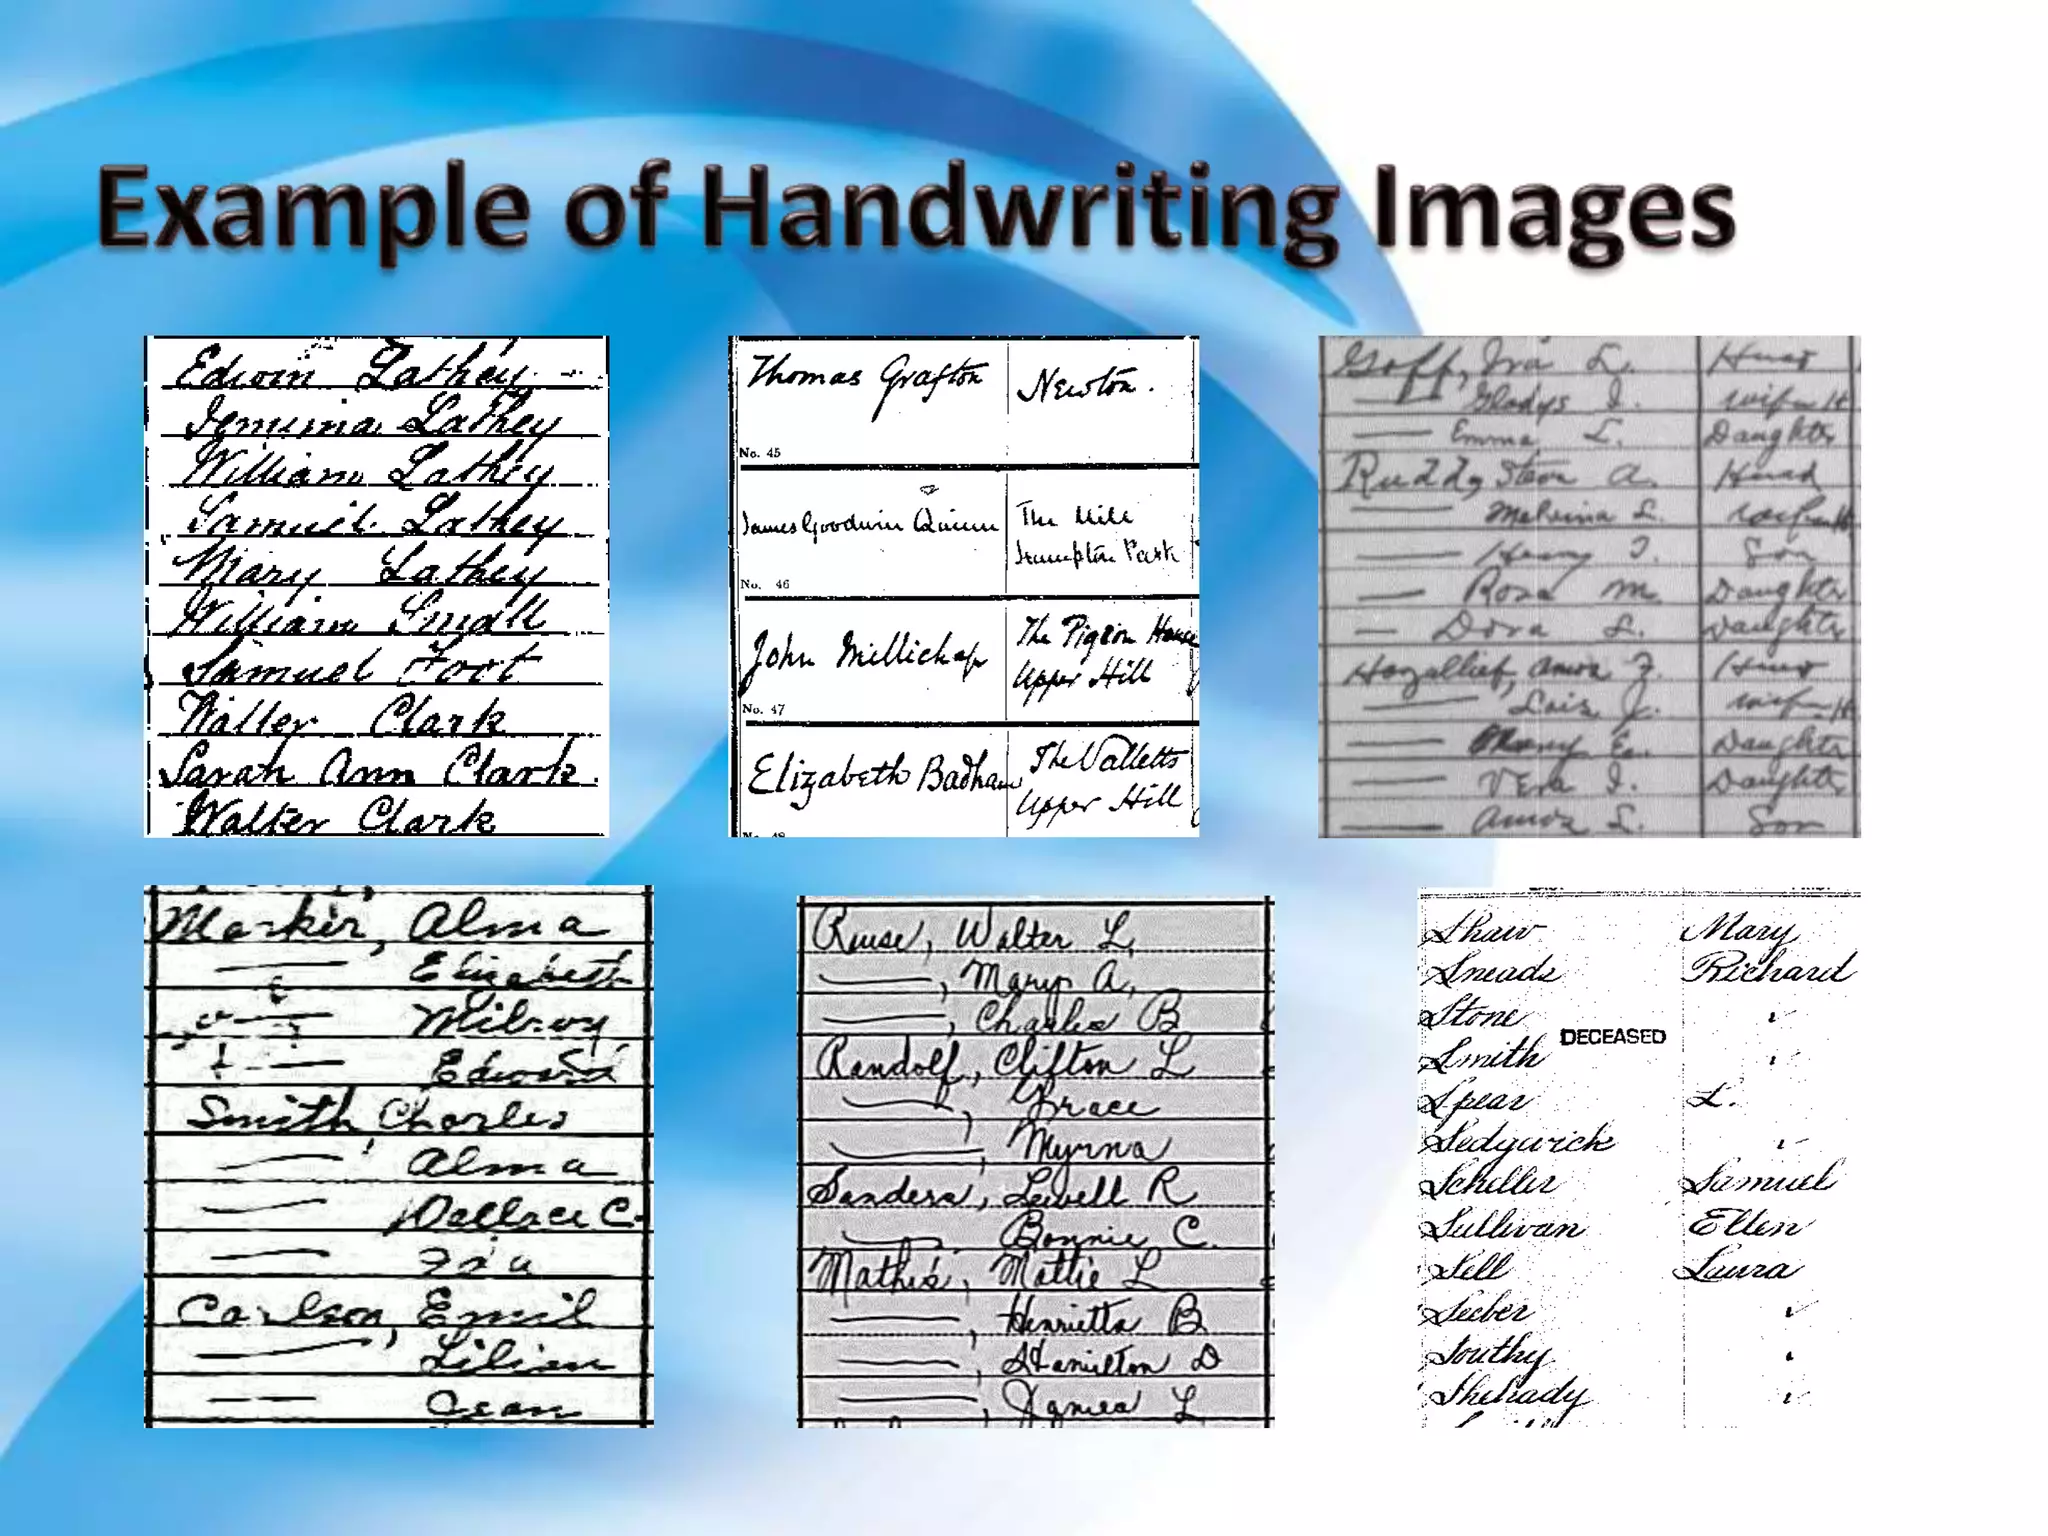 Example of Handwriting Images
Edwin Lathey
Jemima Lathey
William Lathey
Samuel Lathey
Mary Lathey
William Small
Samuel Foot
Walter Clark
Sarah Ann Clark
Walter Clark
Thomas Grafton Newton.
No. 45
James Goodwin Quinn The Mill
Hampton Park
No. 46
John Millichap The Pigeon House
Upper Hill
No. 47
Elizabeth Badham The Valletts
Upper Hill
No. 48
Goff, Ira L. Head
Gladys I. wife H
Emma L. Daughter
Rudd, A. Head
Melvina L. wife H
Henry I. Son
Rosa M. Daughter
Dora L. Daughter
Amos F. Head
Lois J. wife H
E. Daughter
Vera I. Daughter
Amos L. Son
Markir, Alma
— Elizabeth
— Milroy
— Edward
Smith, Charles
— Alma
— Wallace C.
— Ira
Carlson, Emil
— Lilian
— Jean
Ruse, Walter L,
—, Mary A,
—, Charles B
Randolf, Clifton L
—, Grace
—, Myrna
Sanders, Lewell R
— Bonnie C.
Mathis, Mattie L
—, Henrietta B
—, Hamilton D
—, Agnes L
Shaw Mary
Sneads Richard
Stone
DECEASED
Smith
Spear L.
Sedgwick
Schiller Samuel
Sullivan Ellen
Sell Laura
Seeber
Southy